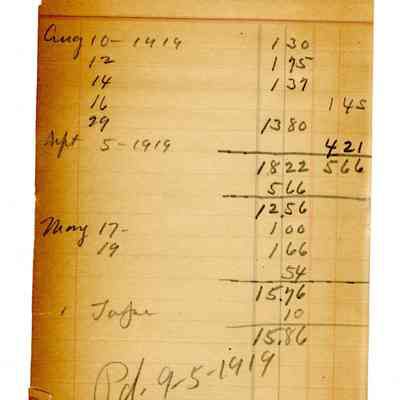 Aug 10- 1919 1 30
12 1 75
14 1 37
16 1 45
29 13 80
Sept 5-1919 4 21
18 22 5 66
5 66
12.56
May 17- 1 00
19 1 66
54
15.76
10
15.86
Pd. 9-5-1919